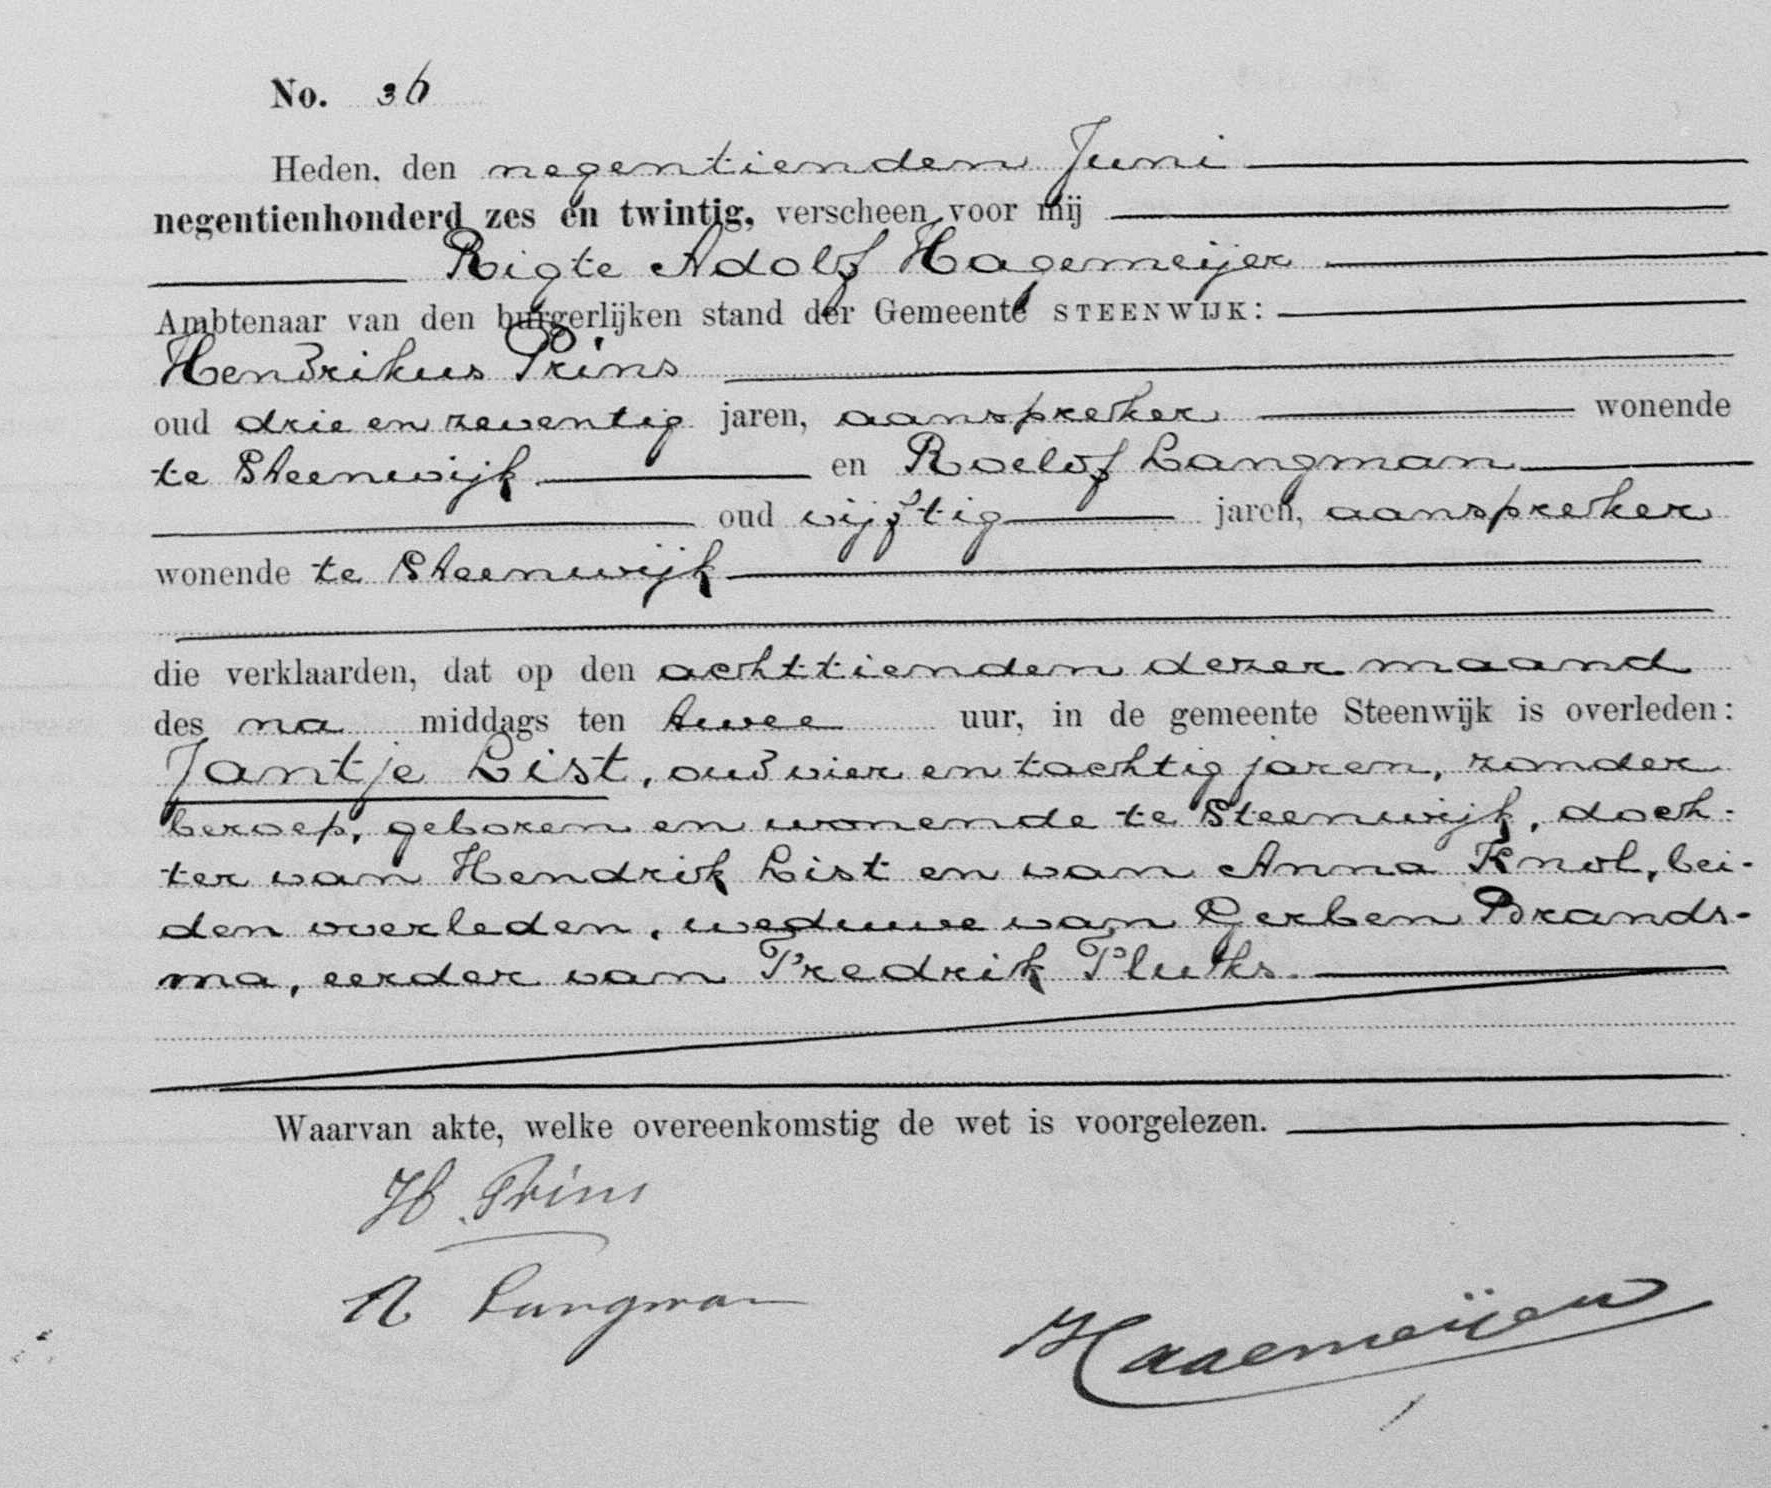 No. 36
Heden, den negentienden Juni
negentienhonderd zes en twintig, verscheen voor mij
Rigte Adolf Hagemeijer
Ambtenaar van den burgerlijken stand der Gemeente STEENWIJK:
Hendrikus Prins
oud drie en zeventig jaren, aanspreker wonende
te Steenwijk en Roelof Langman
oud vijftig jaren, aanspreker
wonende te Steenwijk
die verklaarden, dat op den achttienden dezer maand
des na middags ten twee uur, in de gemeente Steenwijk is overleden:
Jantje List, oud vier en tachtig jaren, zonder
beroep, geboren en wonende te Steenwijk, doch-
ter van Hendrik List en van Anna Knol, bei-
den overleden, weduwe van Gerben Brands-
ma, eerder van Fredrik Pluks.
Waarvan akte, welke overeenkomstig de wet is voorgelezen.
H. Prins
R Langman
Hagemeijer